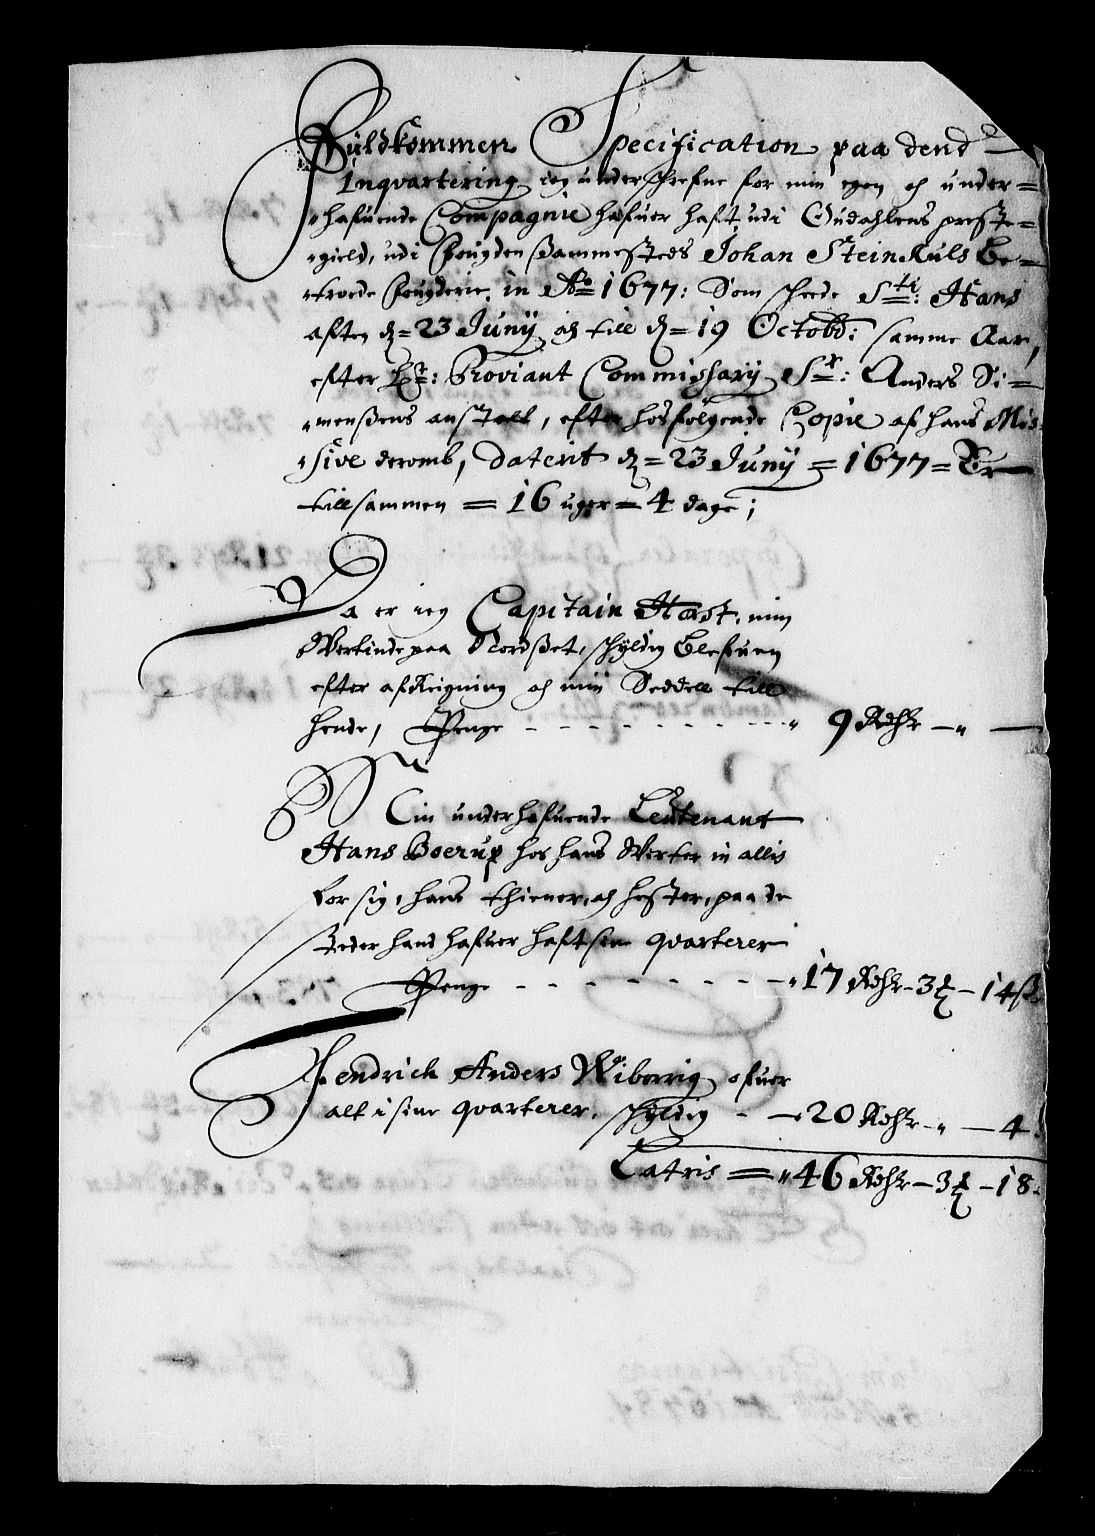 Fuldkommen Specification paa dend
Inqvartering ieg underschrefne for min egen och under=
hafuende Compagnie hafuer haft udi Gudahlens preste=
gield, udi fougden sammesteds Johan Stein Kuls be=
troede fougderie, in Ao 1677: Som scheede Sti: Hans
aften d= 23 Junij och till d= 19 Octobr: samme Aar,
efter Hr: Proviant Commissarij Sr: Anders Si=
menssens anstalt, efter hosfølgende Copie af hans Mis=
sive deromb, daterit d= 23 Junij = 1677 = Er
till sammen = 16 uger = 4 dage;
Da er ieg Capitain Hast, min
Wertinde paa Nordset, schyldig blefuen
efter afreigning och min Seddell till
hende, Penge - - - - - - - - - 9 Rdr — „ —
Min underhafuende Leutenant
Hans Boerup hos hans Werter in allis
for sig, hans thiener, och hester, paa de
steder hand hafuer haft sine qvarterer
Penge - - - - - - - - - 17 Rdr – 3 ƶ – 14 ß
Fendrich Anders Wiberrig ofuer
alt i sine qvarterer, schyldig - - 20 Rdr - „ — 4.
Latris = „ 46 Rdr – 3 ƶ – 18.